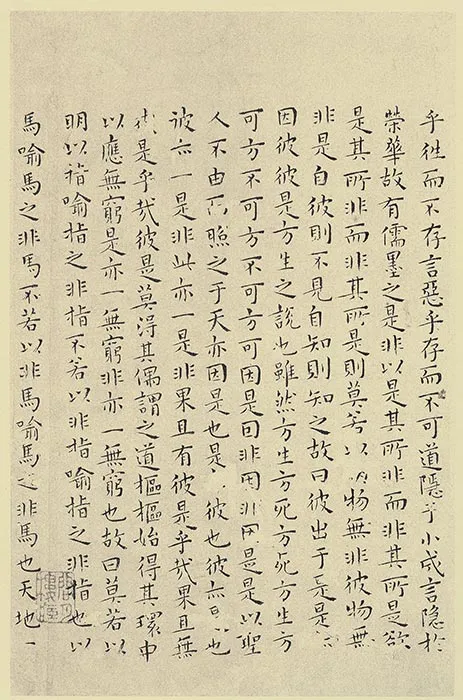 乎往而不存言惡乎存而不可道隱乎小成言隱於
榮華故有儒墨之是非以是其所非而非其所是欲
是其所非而非其所是則莫若以明物無非彼物無
非是自彼則不見自知則知之故曰彼出于是是
因彼彼是方生之說也雖然方生方死方死方生方
可方不可方不可方可因是因非因非因是是以聖
人不由而照之于天亦因是也是彼也彼亦是也
彼亦一是非此亦一是非果且有彼是乎哉果且無
彼是乎哉彼是莫得其偶謂之道樞樞始得其環中
以應無窮是亦一無窮非亦一無窮也故曰莫若以
明以指喻指之非指不若以非指喻指之非指也以
馬喻馬之非馬不若以非馬喻馬之非馬也天地一